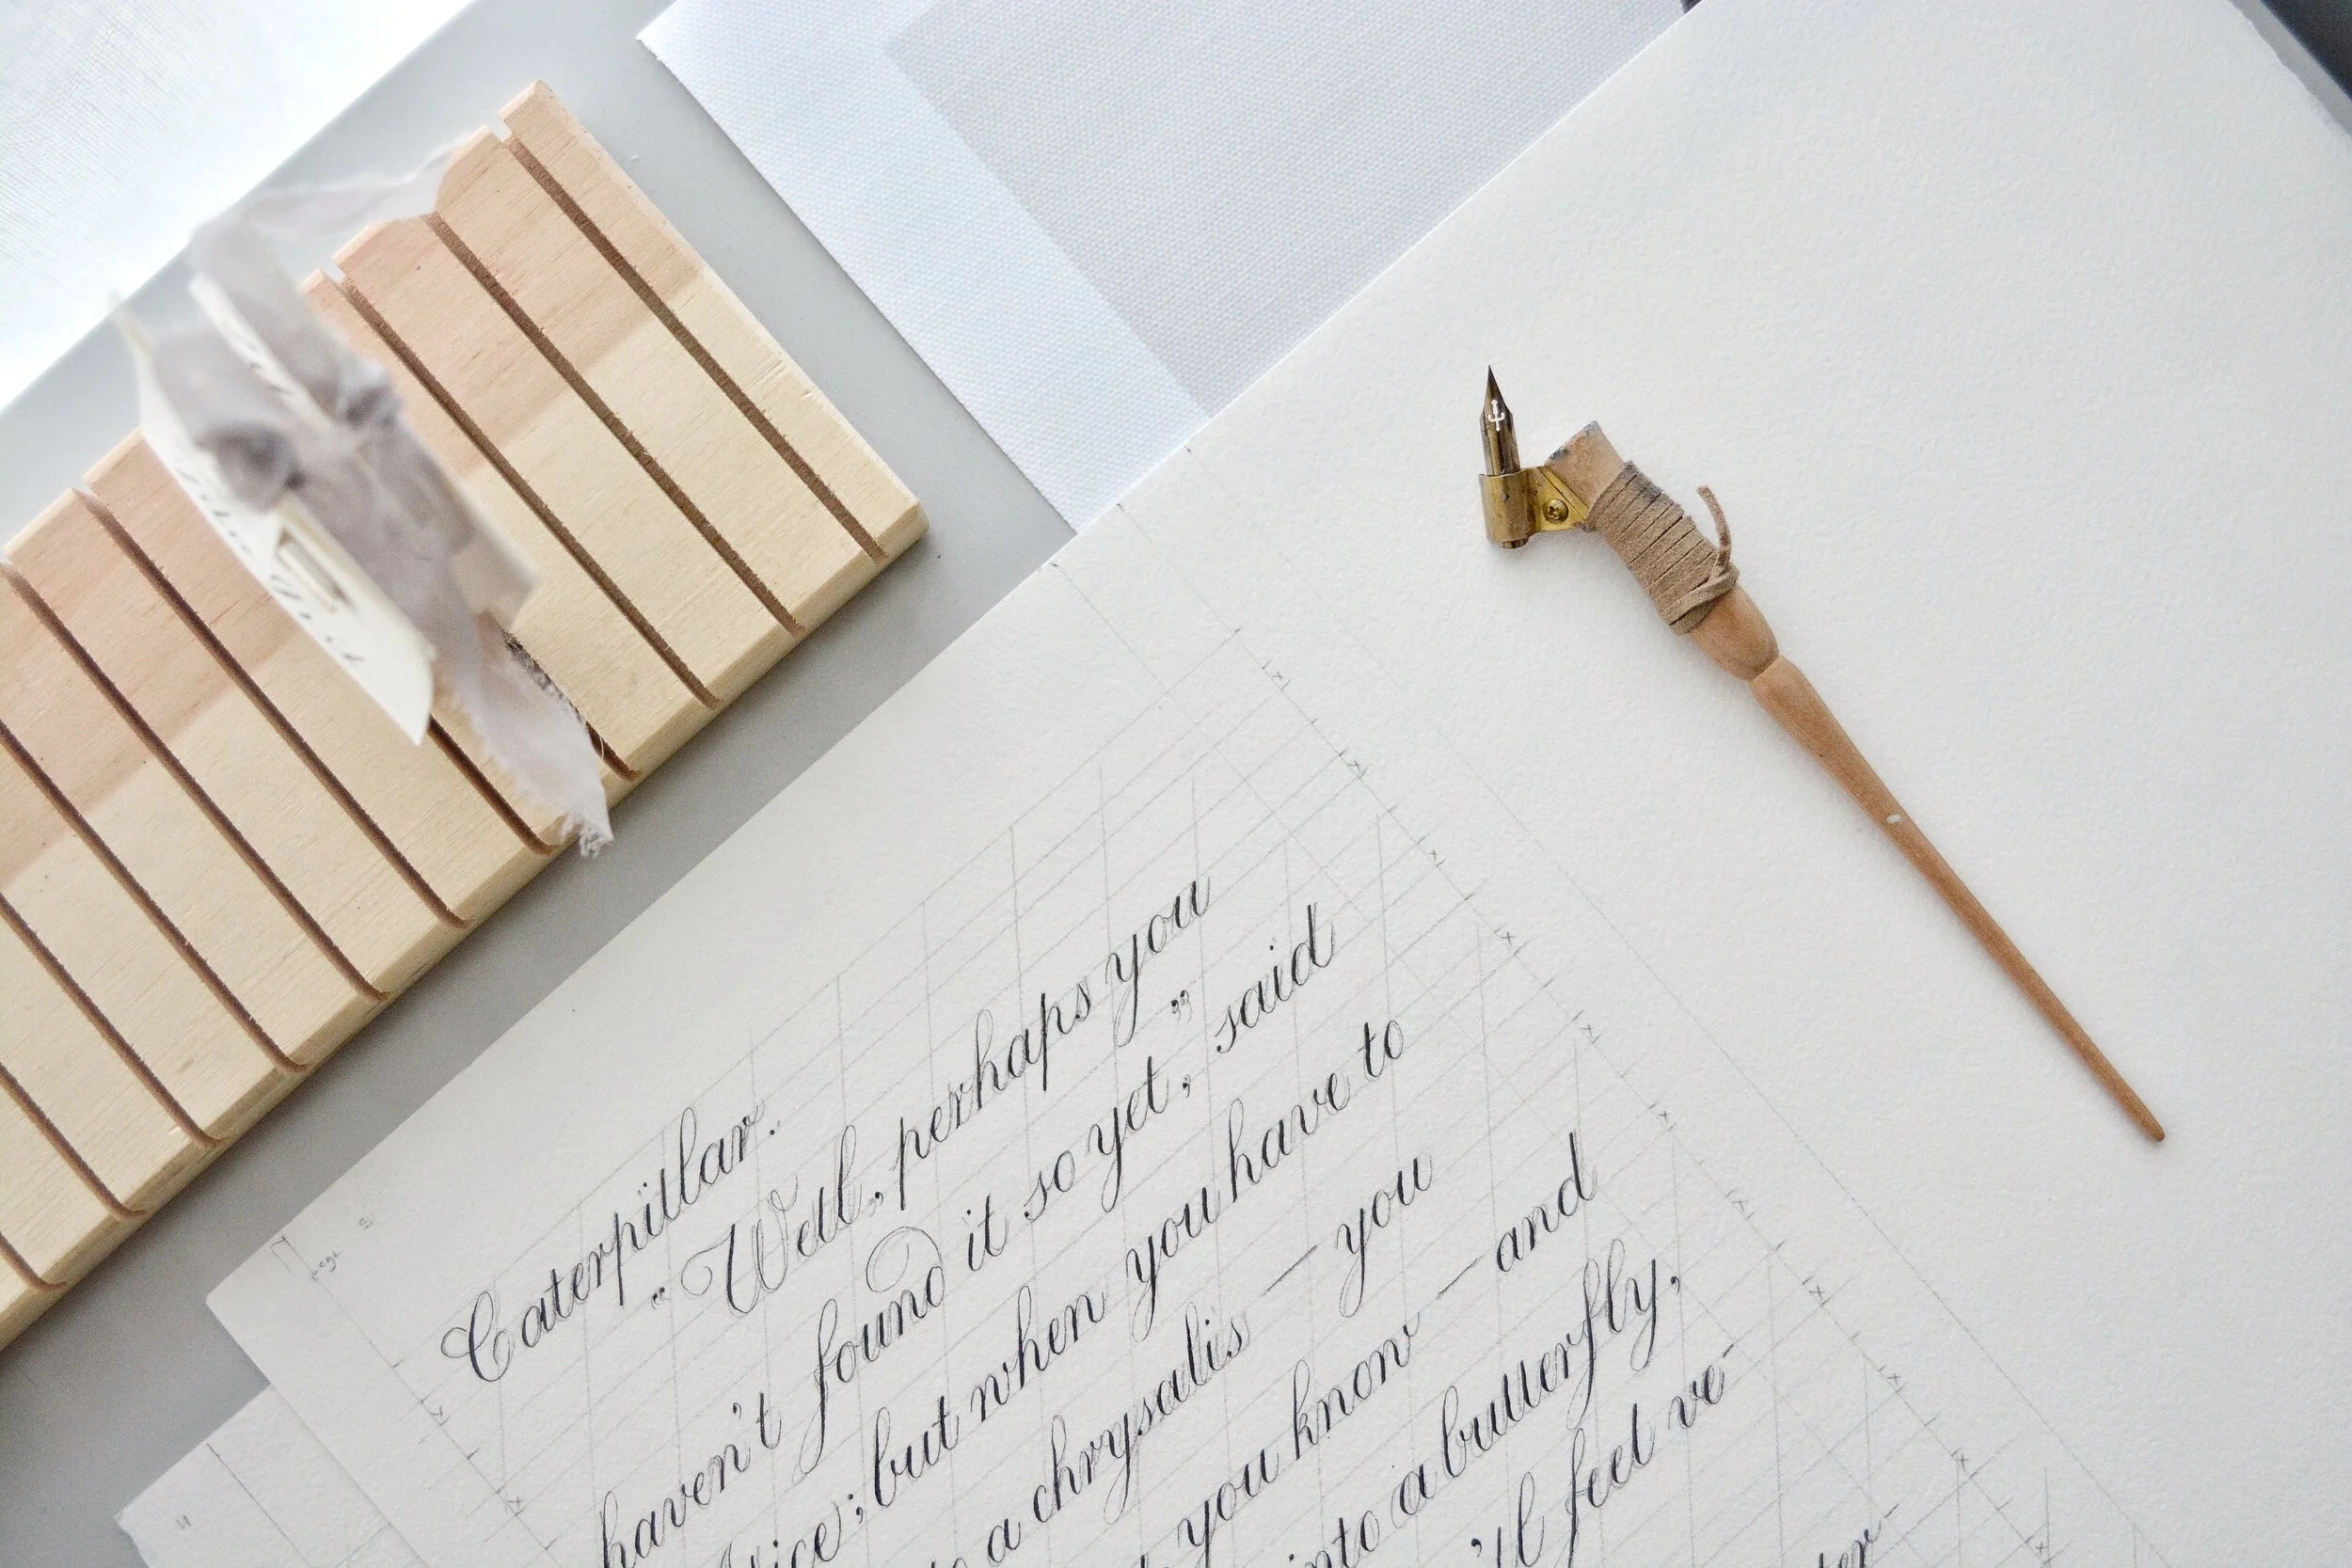 Caterpillar.
"Well, perhaps you
haven't found it so yet," said
but when you have to
a chrysalis — you
you know — and
into a butterfly,
'll feel ve-
page 5